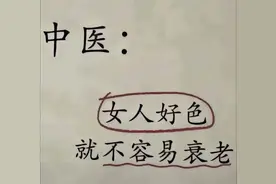 中医：
女人好色
就不容易衰老